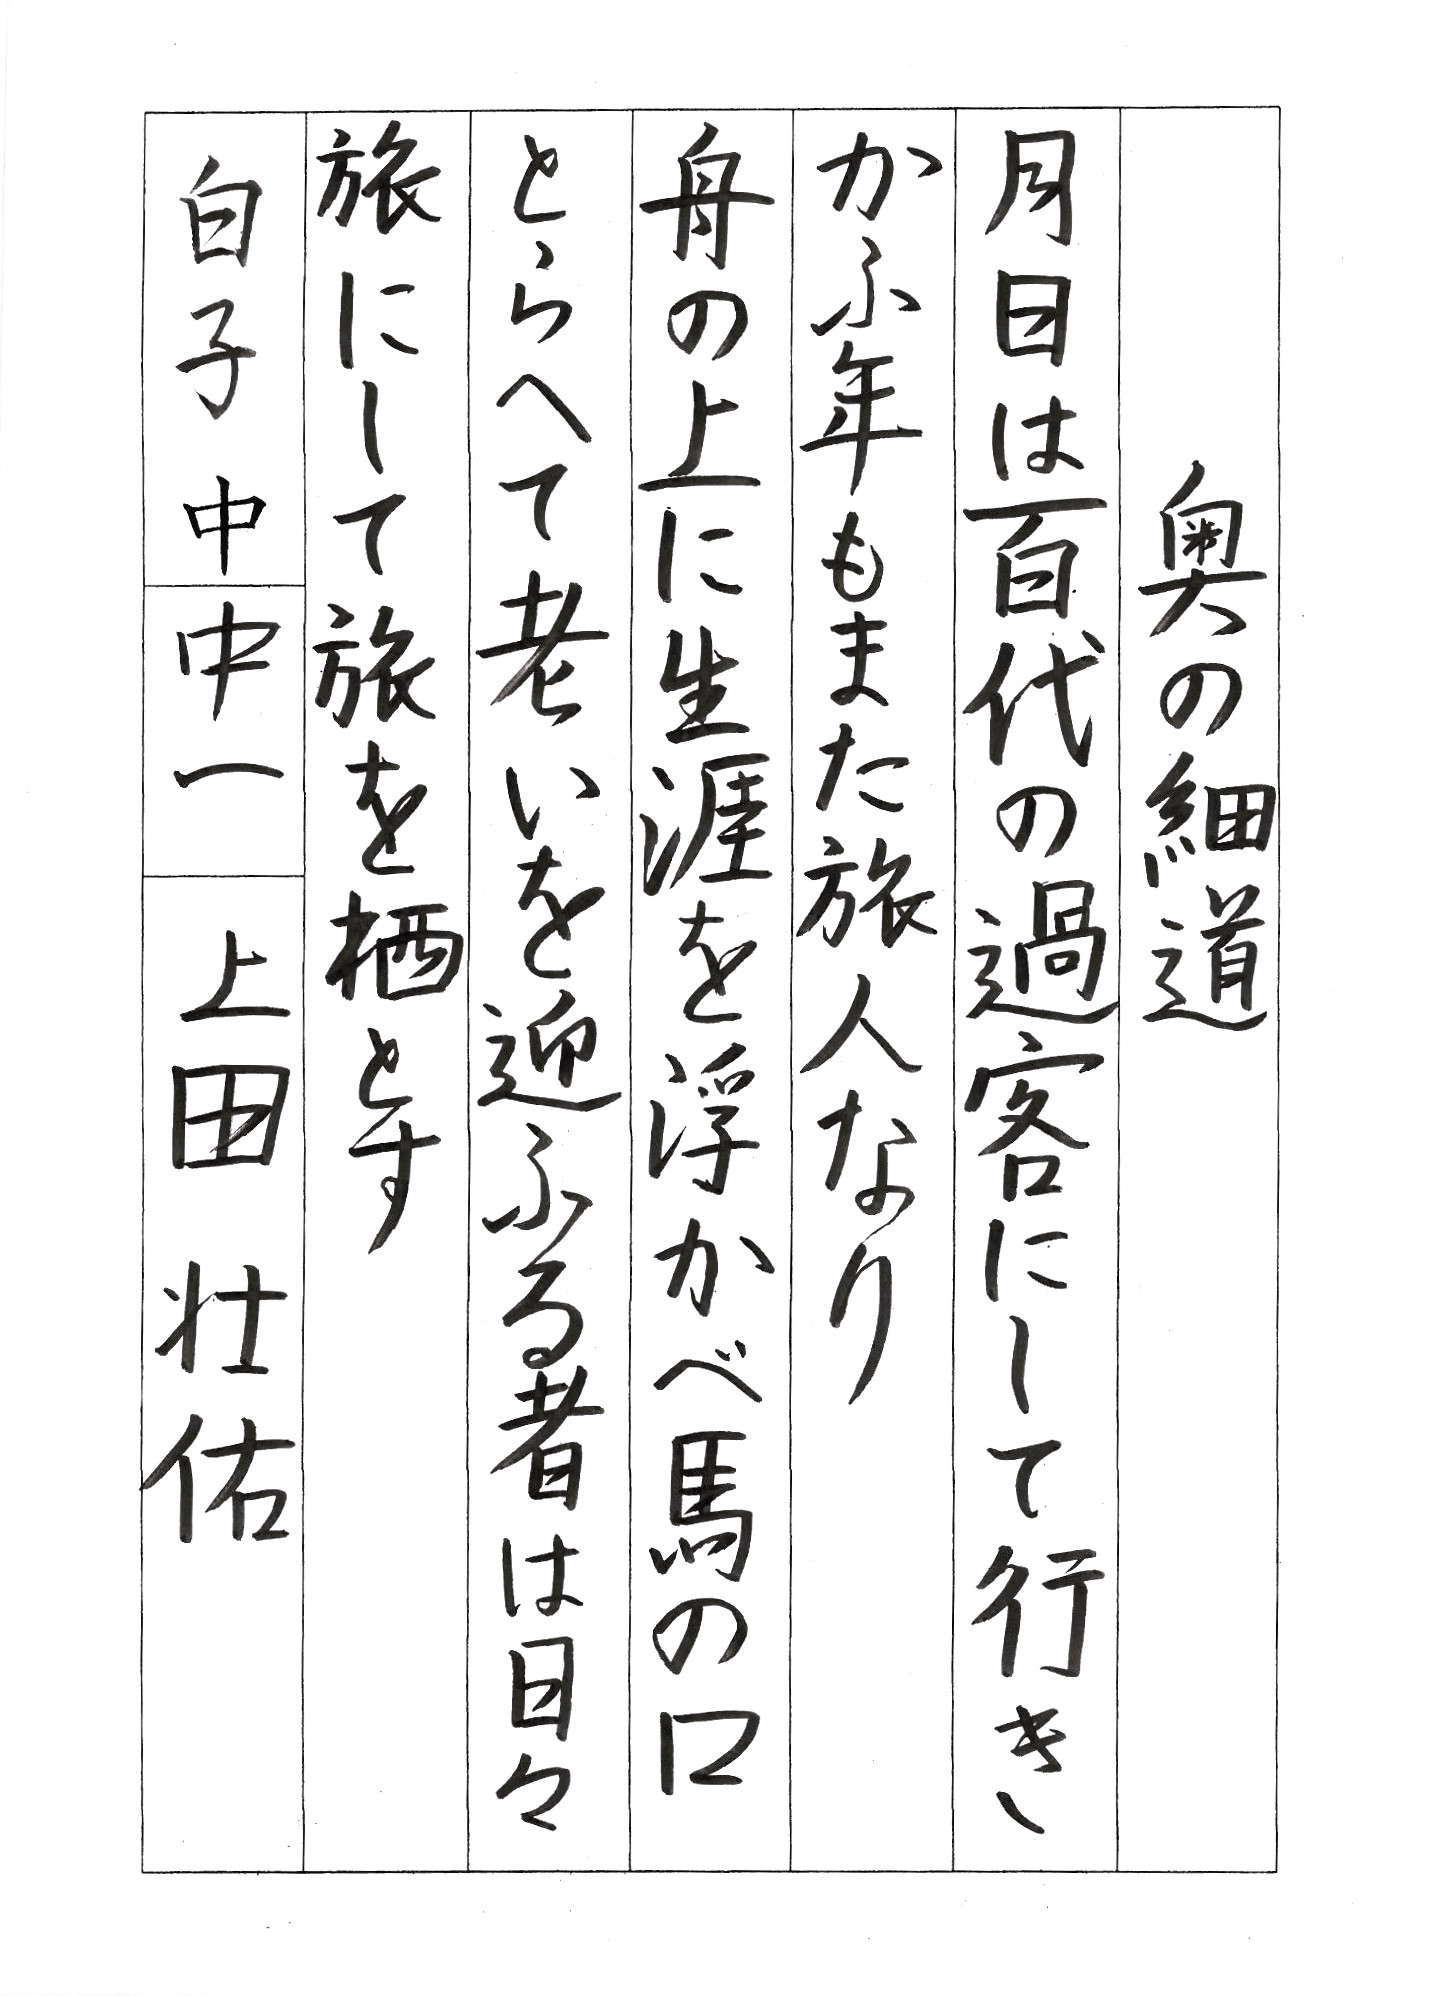 奥の細道
月日は百代の過客にして行き
かふ年もまた旅人なり
舟の上に生涯を浮かべ馬の口
とらへて老いを迎ふる者は日々
旅にして旅を栖とす
白子中 中一 上田壮佑